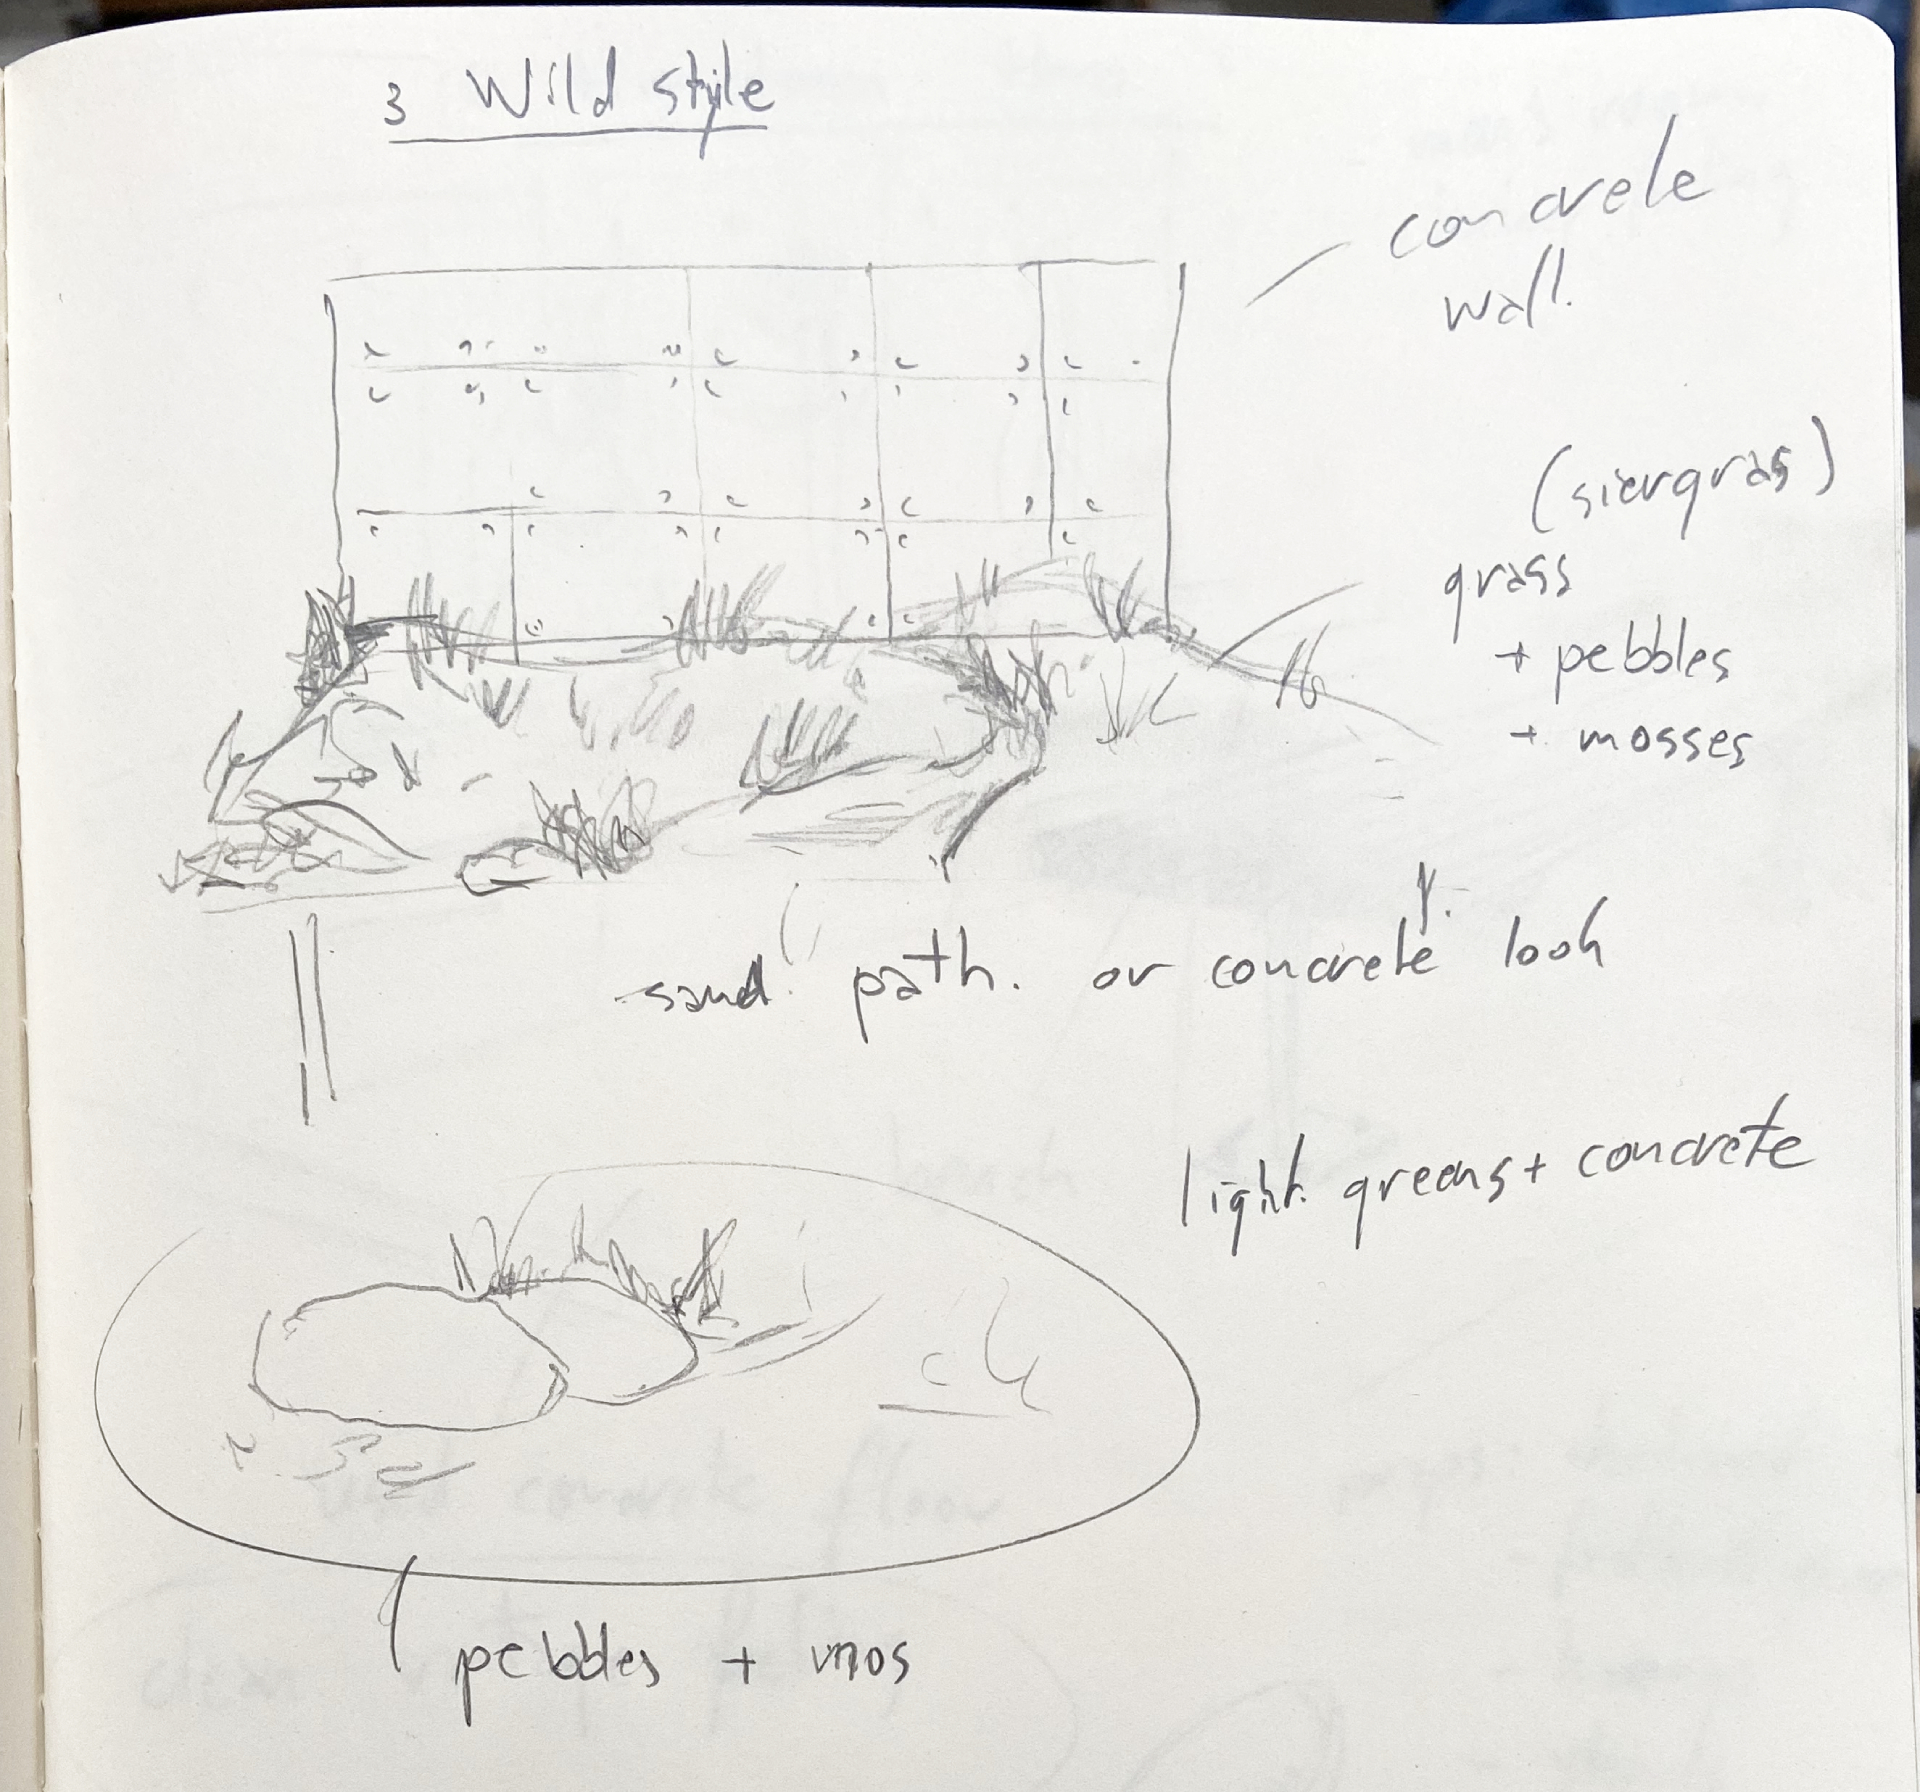 3 Wild style
concrete
wall.
(siergras)
grass
+ pebbles
+ mosses
sand path. or concrete look
light greens + concrete
pebbles + mos